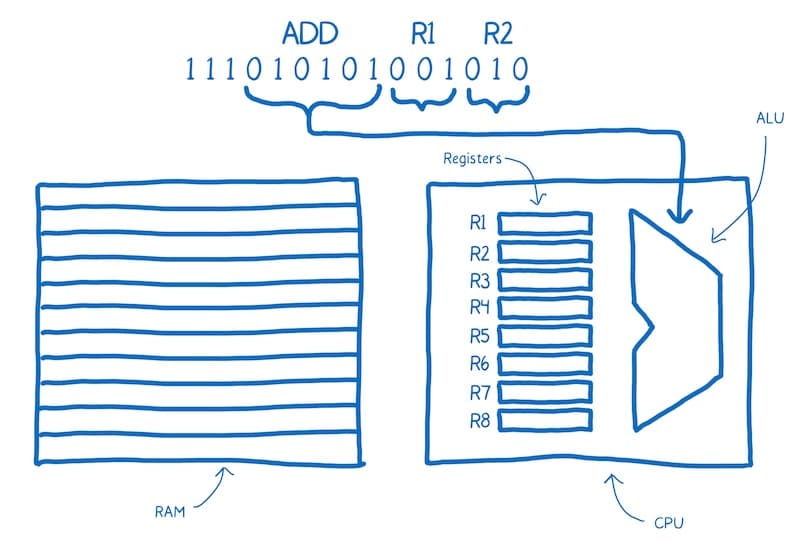 ADD R1 R2
1 1 1 0 1 0 1 0 1 0 0 1 0 1 0
ALU
Registers
R1
R2
R3
R4
R5
R6
R7
R8
RAM
CPU